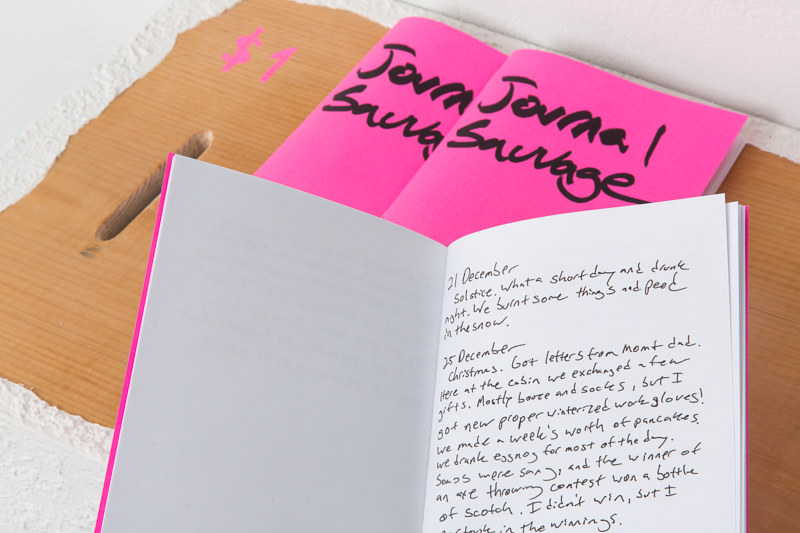 $1
Journa
Sauvag
Journal
Sauvage
21 December
Solstice. What a short day and drunk
night. We burnt some things and peed
in the snow.
25 December
Christmas. Got letters from Mom & dad.
Here at the cabin we exchanged a few
gifts. Mostly booze and socks, but I
got new proper winterized work gloves!
We made a week's worth of pancakes.
We drank eggnog for most of the day.
Songs were sang, and the winner of
an axe throwing contest won a bottle
of scotch. I didn't win, but I
in the winnings.